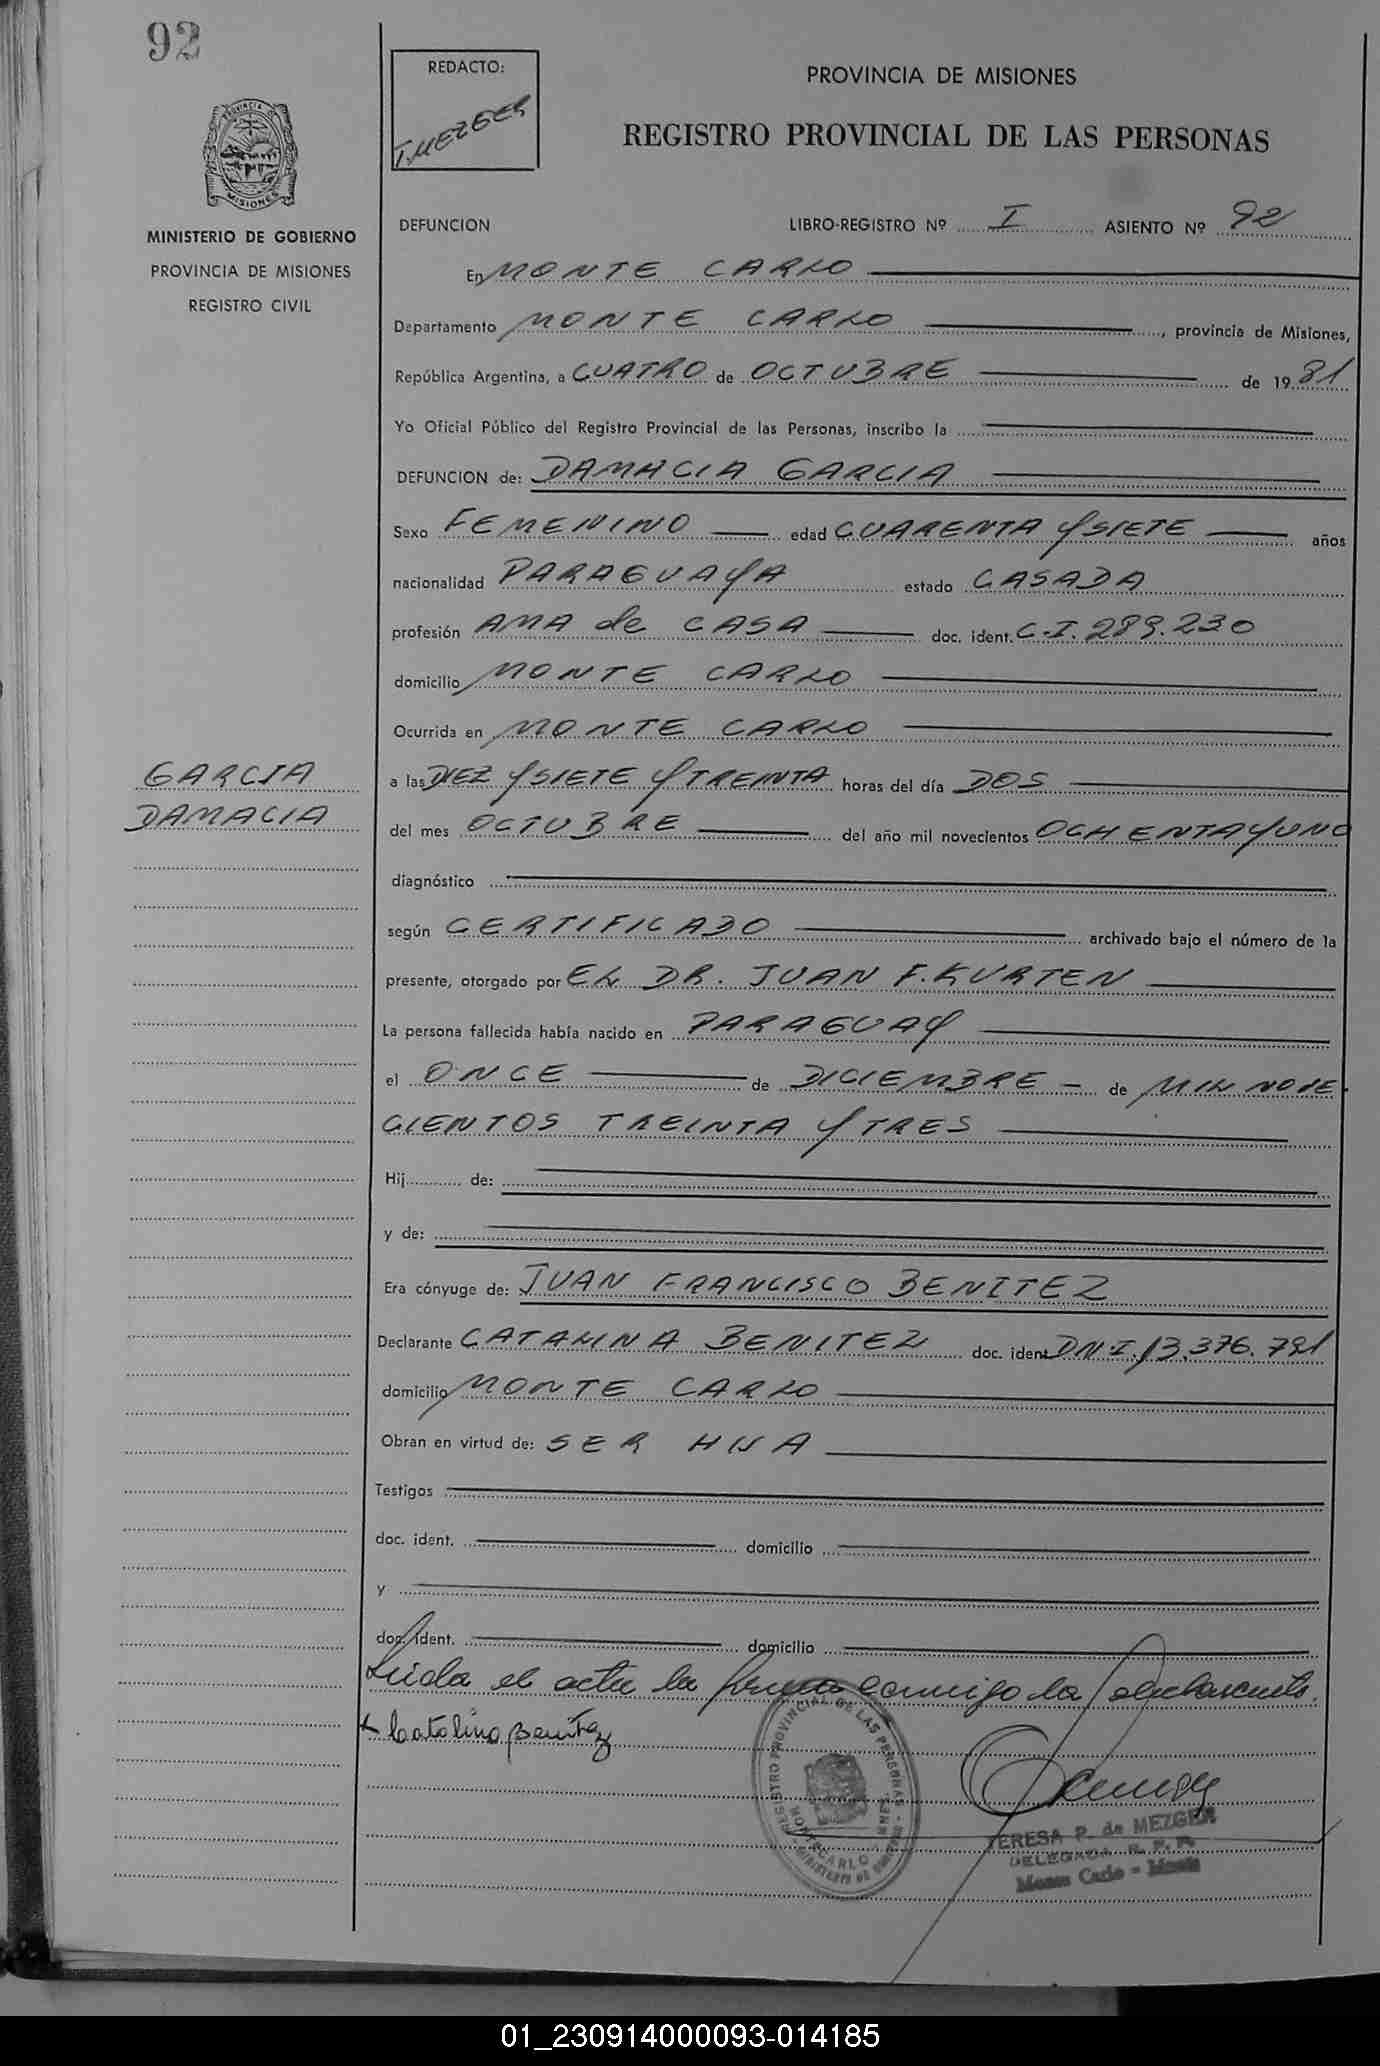 92
REDACTO:
T. MEZGER
PROVINCIA DE MISIONES
REGISTRO PROVINCIAL DE LAS PERSONAS
PROVINCIA DE
MISIONES
MINISTERIO DE GOBIERNO
PROVINCIA DE MISIONES
REGISTRO CIVIL
DEFUNCION LIBRO-REGISTRO Nº I ASIENTO Nº 92
En MONTE CARLO
Departamento MONTE CARLO, provincia de Misiones,
República Argentina, a CUATRO de OCTUBRE de 19 81
Yo Oficial Público del Registro Provincial de las Personas, inscribo la
DEFUNCION de: DAMACIA GARCIA
Sexo FEMENINO edad CUARENTA Y SIETE años
nacionalidad PARAGUAYA estado CASADA
profesión AMA de CASA doc. ident. C.I. 289.230
domicilio MONTE CARLO
Ocurrida en MONTE CARLO
GARCIA
DAMACIA
a las DIEZ Y SIETE Y TREINTA horas del día DOS
del mes OCTUBRE del año mil novecientos OCHENTA Y UNO
diagnóstico
según CERTIFICADO archivado bajo el número de la
presente, otorgado por EL DR. JUAN F. KURTEN
La persona fallecida había nacido en PARAGUAY
el ONCE de DICIEMBRE de MIL NOVE
CIENTOS TREINTA Y TRES
Hij de:
y de:
Era cónyuge de: JUAN FRANCISCO BENITEZ
Declarante CATALINA BENITEZ doc. ident. DN.I. 13.376.791
domicilio MONTE CARLO
Obran en virtud de: SER HIJA
Testigos
doc. ident. domicilio
y
doc. ident. domicilio
Leida el acta la firma conmigo la
x Catalina Benítez
REGISTRO PROVINCIAL DE LAS PERSONAS
MONTECARLO
TERESA P. de MEZGER
DELEGADA R. P. P.
Monte Carlo -
01_230914000093-014185